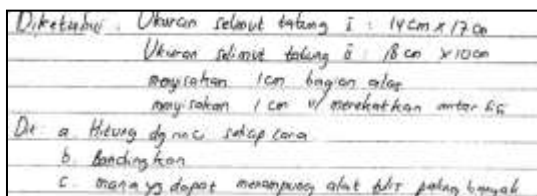 Diketahui . Ukuran selimut tabung I : 14 cm x 17 cm
Ukuran selimut tabung II : 18 cm x 10 cm
menyisakan 1cm bagian alas
menyisakan 1 cm u/ merekatkan antar
Dit : a. Hitung dg rinci setiap cara
b. Bandingkan
c. mana yg dapat menampung alat tulis paling banyak